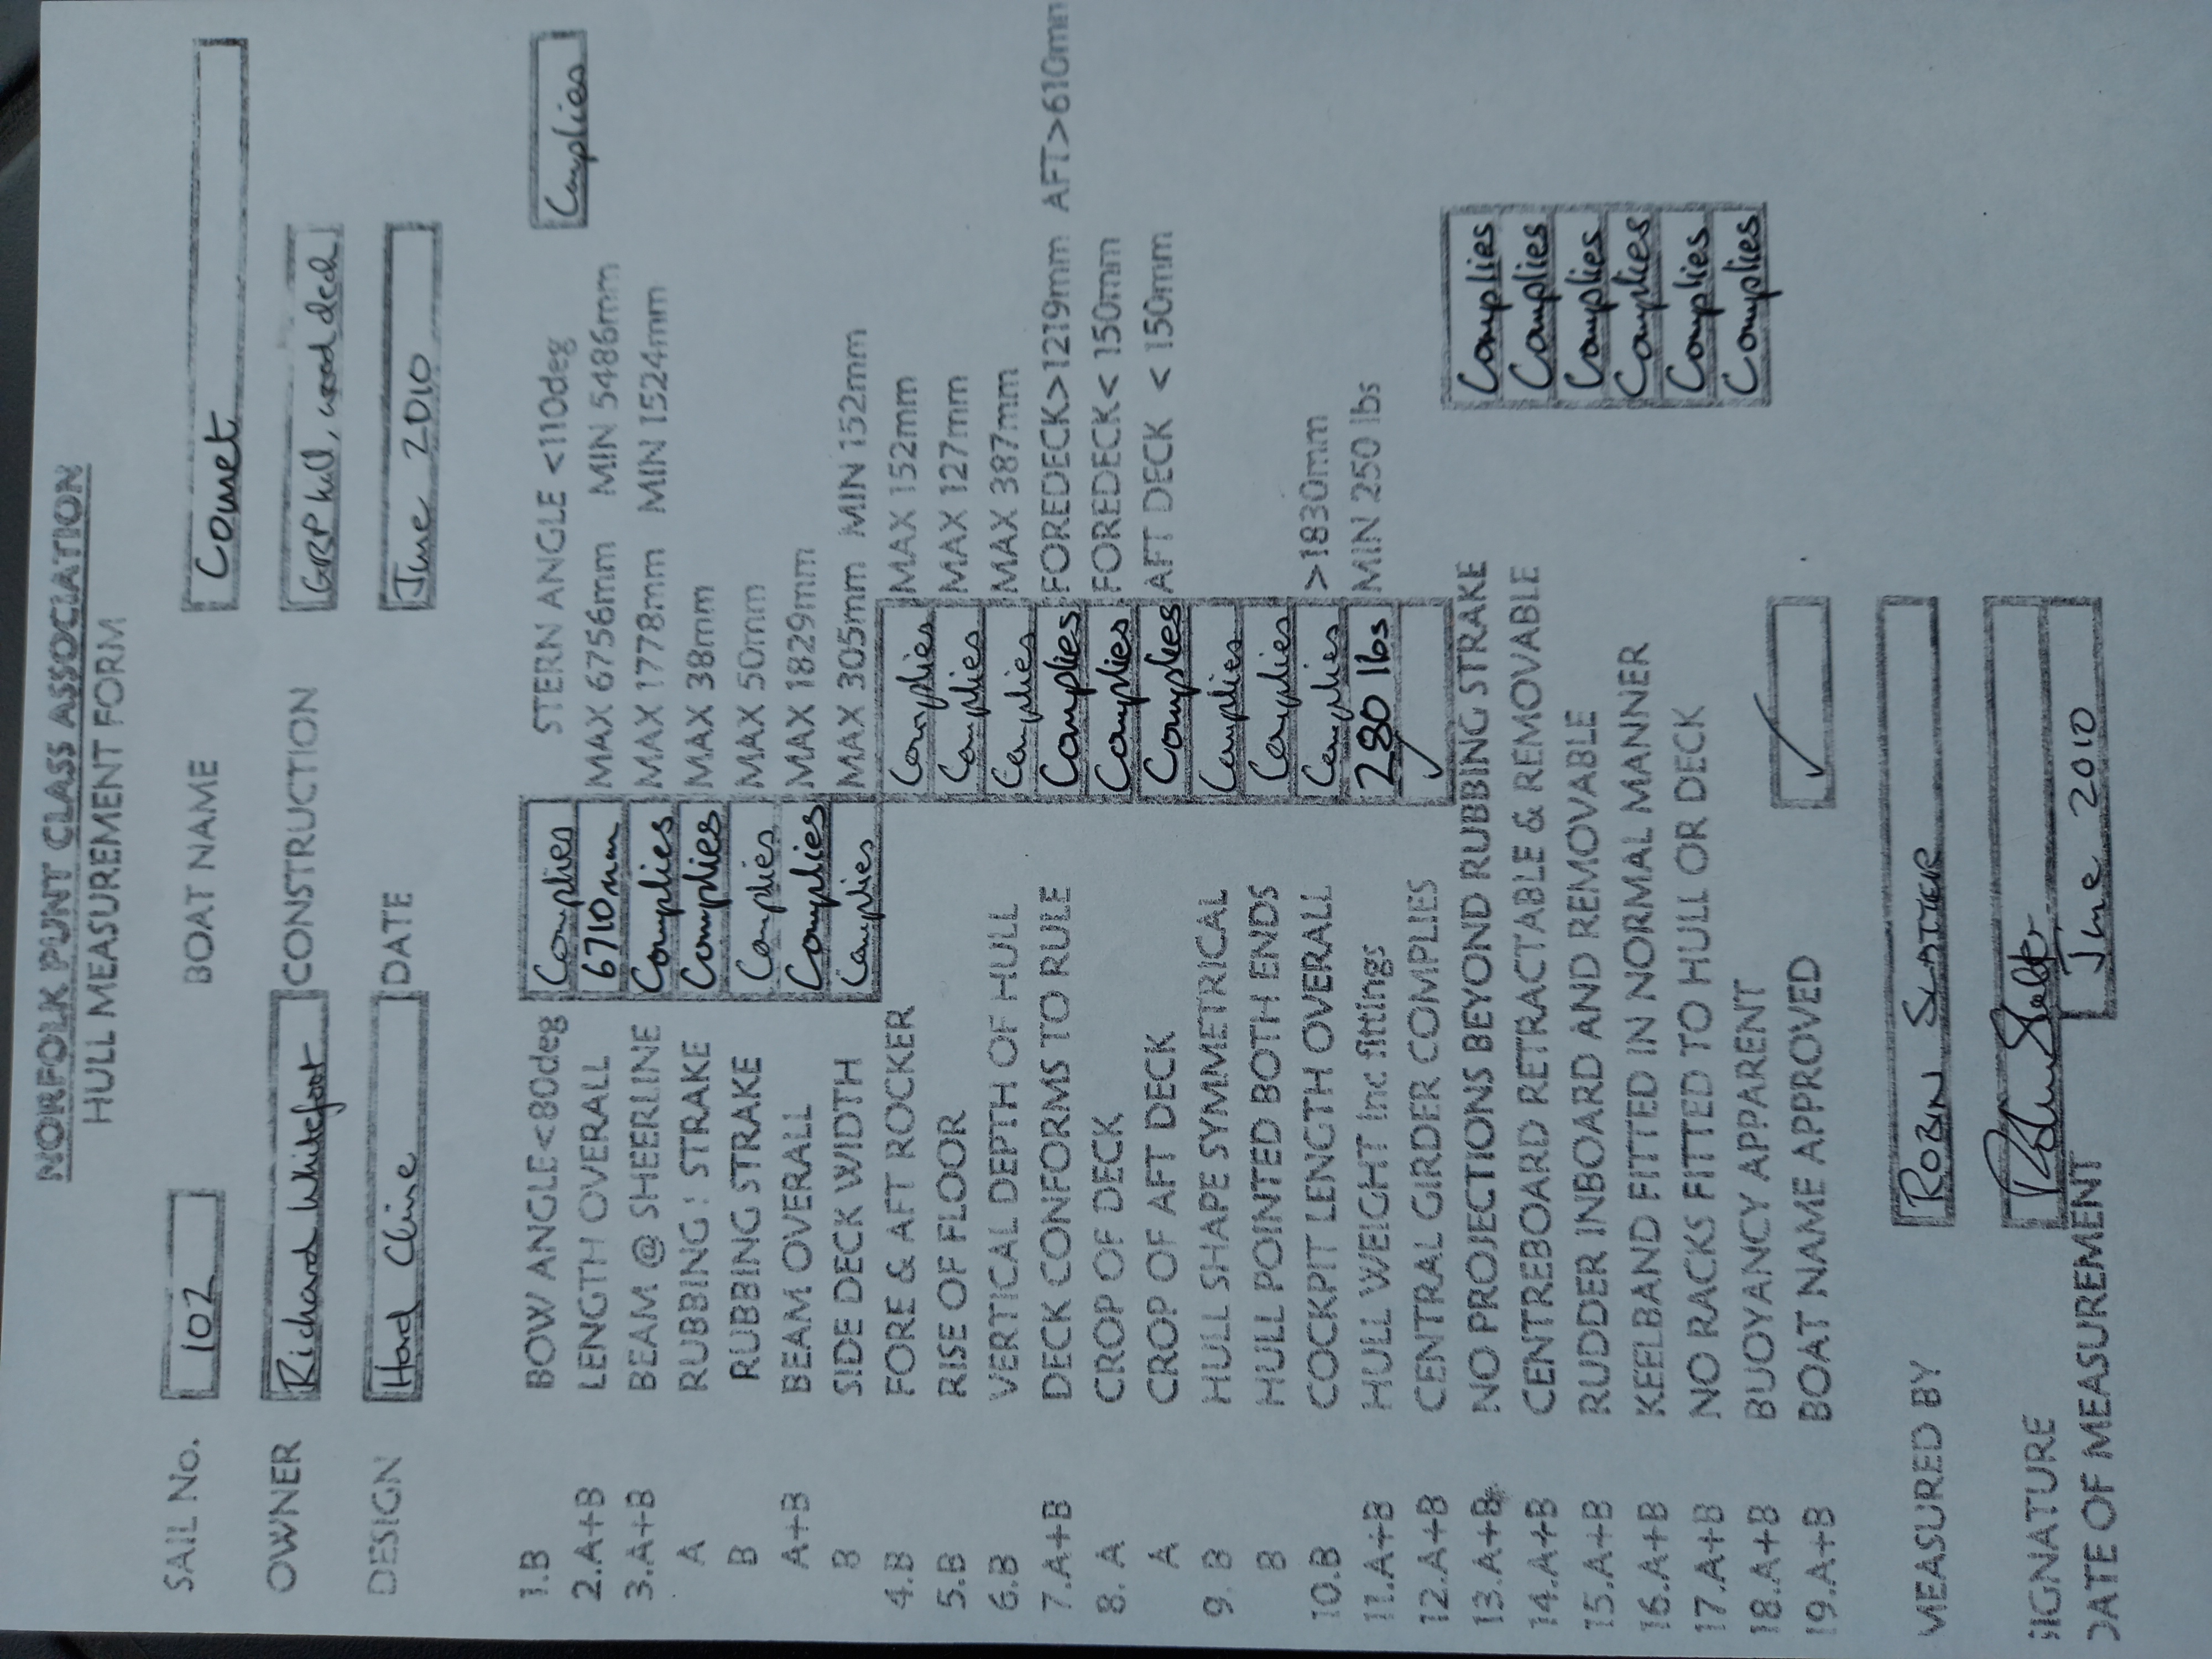 NORFOLK PUNT CLASS ASSOCIATION
HULL MEASUREMENT FORM
SAIL No. 102 BOAT NAME Comet
OWNER Richard Whitefoot CONSTRUCTION GRP hull, wood deck
DESIGN Hard Chine DATE June 2010
1.B BOW ANGLE<80deg Complies STERN ANGLE <110deg Complies
2.A+B LENGTH OVERALL 6710mm MAX 6756mm MIN 5486mm
3.A+B BEAM @ SHEERLINE Complies MAX 1778mm MIN 1524mm
A RUBBING : STRAKE Complies MAX 38mm
B RUBBING STRAKE Complies MAX 50mm
A+B BEAM OVERALL Complies MAX 1829mm
B SIDE DECK WIDTH Complies MAX 305mm MIN 152mm
4.B FORE & AFT ROCKER Complies MAX 152mm
5.B RISE OF FLOOR Complies MAX 127mm
6.B VERTICAL DEPTH OF HULL Complies MAX 387mm
7.A+B DECK CONFORMS TO RULE Complies FOREDECK>1219mm AFT>610mm
8. A CROP OF DECK Complies FOREDECK< 150mm
A CROP OF AFT DECK Complies AFT DECK < 150mm
9. B HULL SHAPE SYMMETRICAL Complies
B HULL POINTED BOTH ENDS Complies
10.B COCKPIT LENGTH OVERALL Complies >1830mm
11.A+B HULL WEIGHT inc fittings 280 lbs MIN 250 lbs
12.A+B CENTRAL GIRDER COMPLIES ✓
13.A+B NO PROJECTIONS BEYOND RUBBING STRAKE Complies
14.A+B CENTREBOARD RETRACTABLE & REMOVABLE Complies
15.A+B RUDDER INBOARD AND REMOVABLE Complies
16.A+B KEELBAND FITTED IN NORMAL MANNER Complies
17.A+B NO RACKS FITTED TO HULL OR DECK Complies
18.A+B BUOYANCY APPARENT Complies
19.A+B BOAT NAME APPROVED ✓
MEASURED BY ROBIN SLATTER
SIGNATURE Robin Slatter
DATE OF MEASUREMENT June 2010